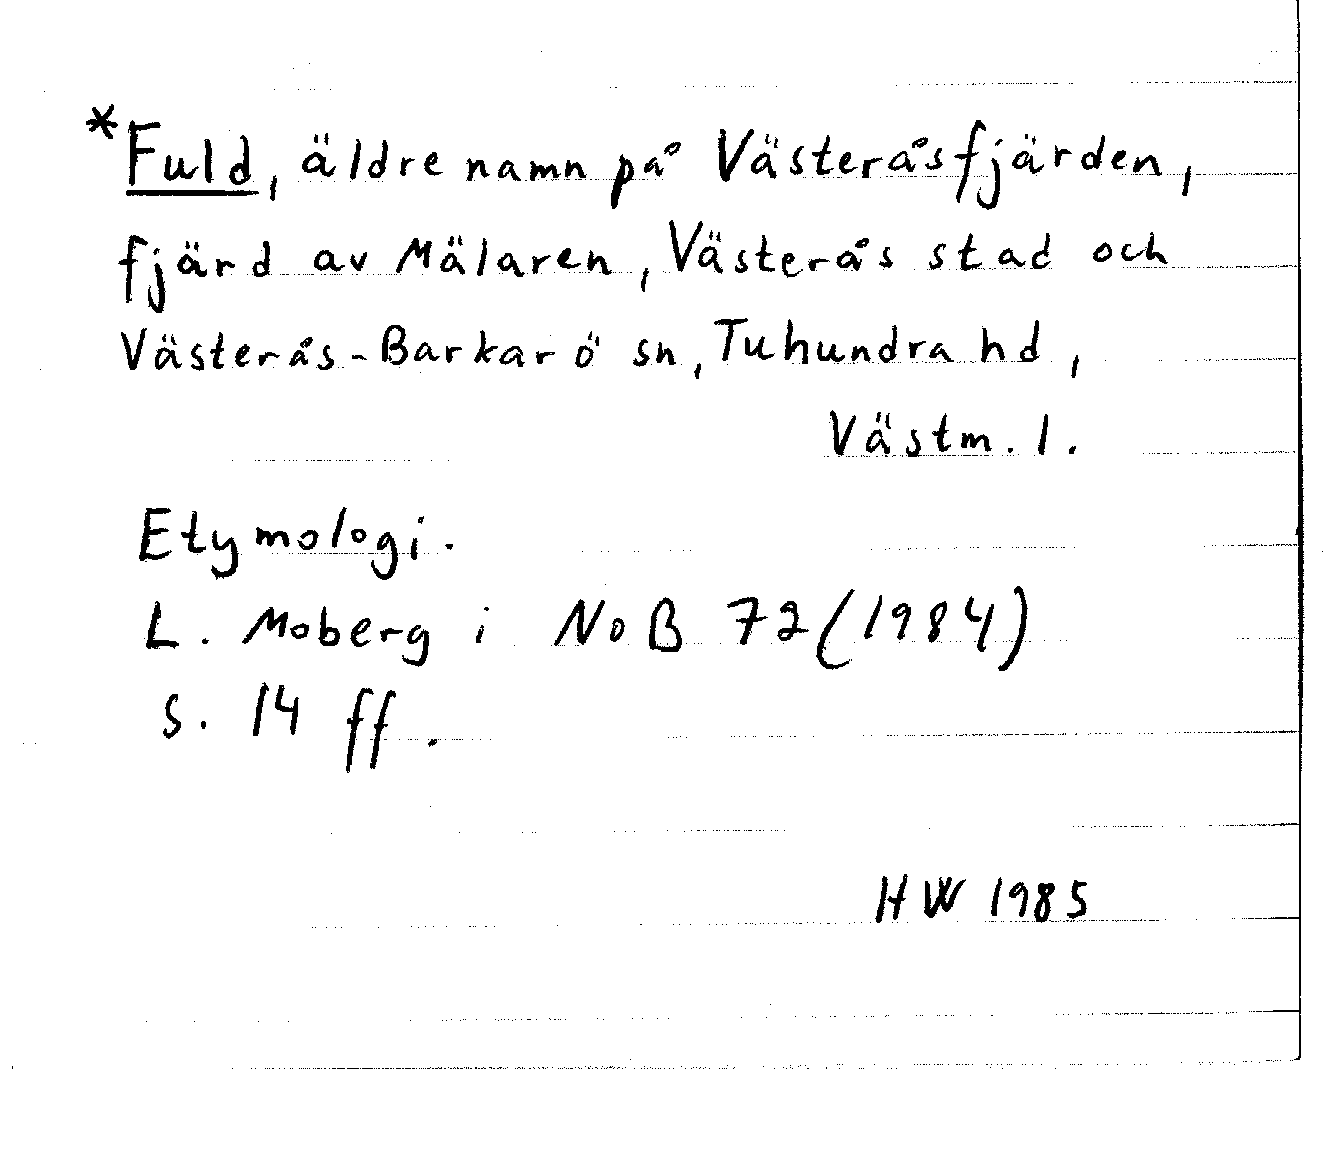 *Fuld, äldre namn på Västeråsfjärden,
fjärd av Mälaren, Västerås stad och
Västerås-Barkarö sn, Tuhundra hd,
Västm. l.
Etymologi.
L. Moberg i NoB 72 (1984)
s. 14 ff.
HW 1985